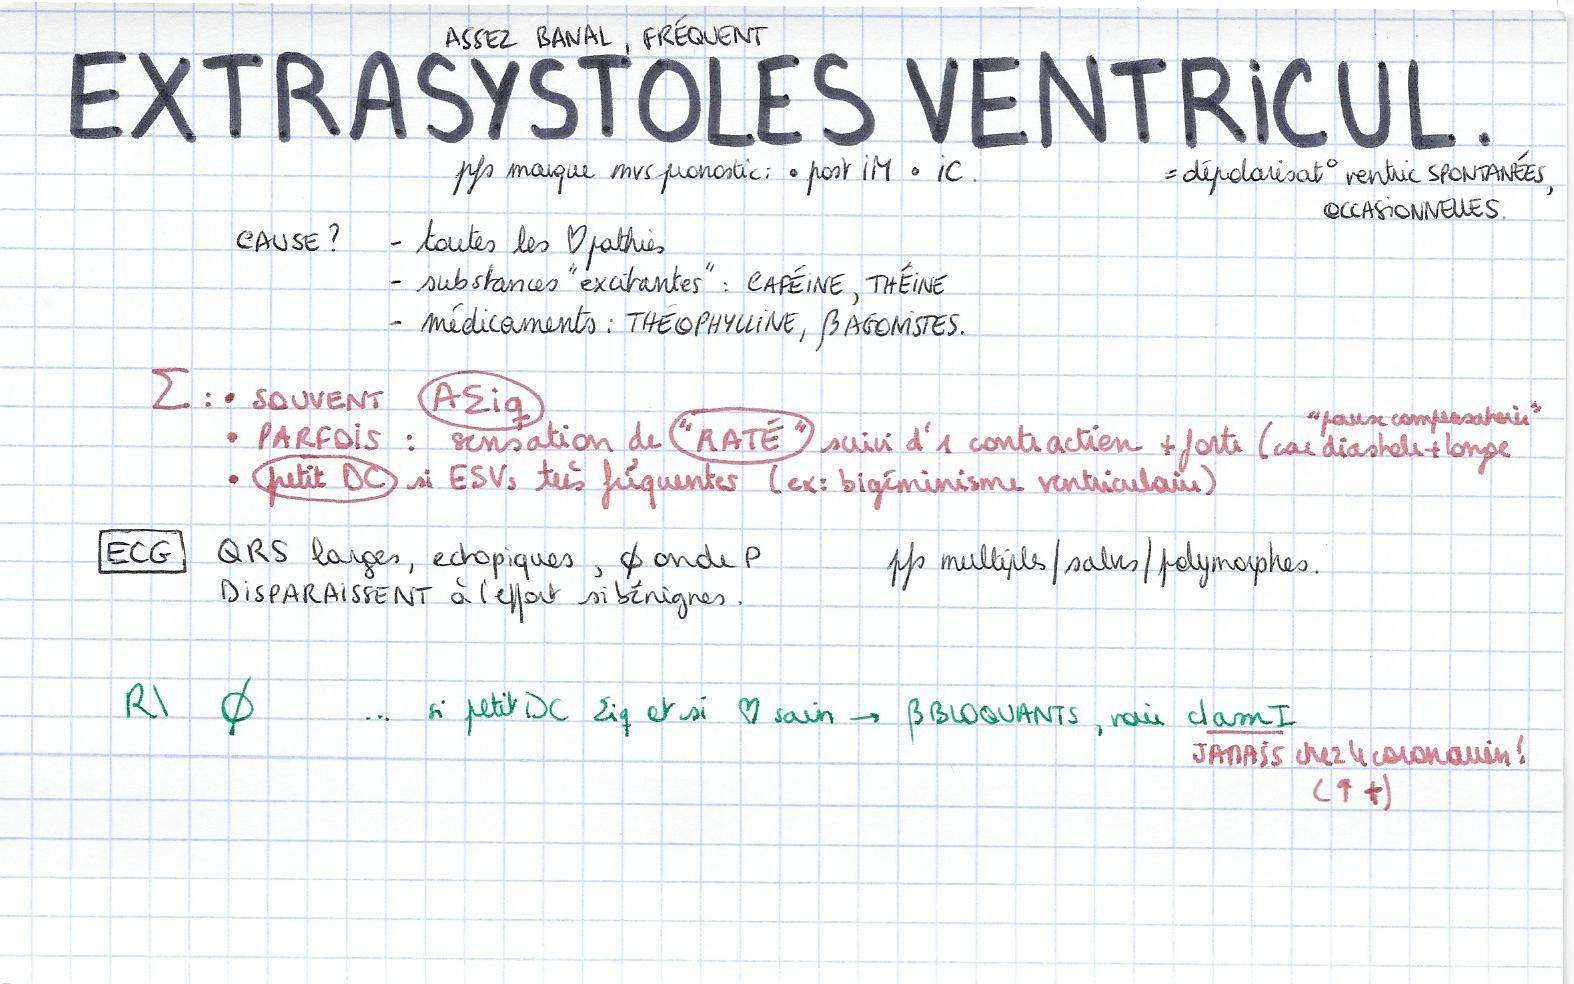 ASSEZ BANAL, FRÉQUENT
EXTRASYSTOLES VENTRICUL.
pfs marque mvs pronostic : • post IM • IC.
= dépolarisat° ventric SPONTANÉES,
OCCASIONNELLES.
CAUSE ? - toutes les ♡pathies
- substances "excitantes" : CAFÉINE, THÉINE
- médicaments : THÉOPHYLLINE, β AGONISTES.
Σ : • SOUVENT AΣiq
"pause compensatoire"
• PARFOIS : sensation de "RATÉ" suivi d'1 contraction + forte (car diastole + longe
• petit DC si ESVs très fréquentes (ex: bigéminisme ventriculaire)
ECG QRS larges, ectopiques, ∅ onde P pfs multiples/salves/polymorphes.
DISPARAISSENT à l'effort si bénignes.
R\ ∅ ... si petit DC Σiq et si ♡ sain → β BLOQUANTS, voire classe I
JAMAIS chez le coronarien !
(↑ †)